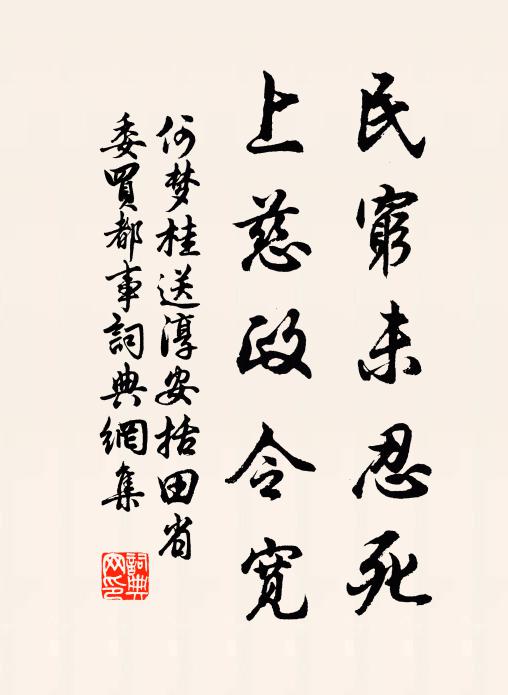 民窮未忍死
上慈政令宽
何梦桂送淳安括田省
委買都事詞典網集
詞典网印